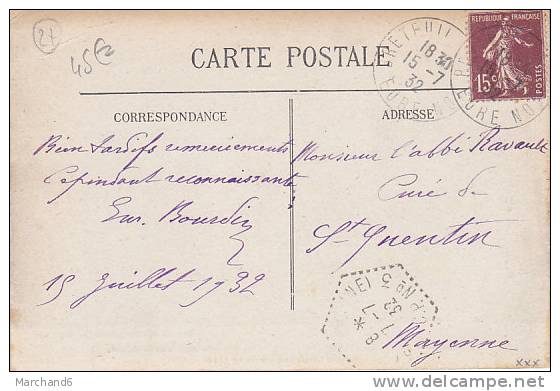 27
45€
CARTE POSTALE
REPUBLIQUE FRANÇAISE
POSTES
15c
BRETEUIL
18 30
15 -7
32
EURE
CORRESPONDANCE
ADRESSE
Bien tardifs remerciements
Cependant reconnaissants
Eug. Bourdin
15 Juillet 1932
Monsieur l'abbé Ravault
Curé de
St Quentin
Mayenne
xxx
http://marchand6
delcampe.net